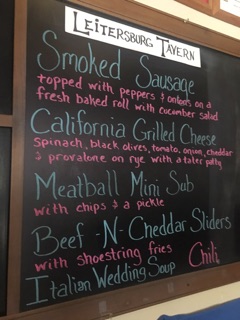 LEITERSBURG TAVERN
Smoked Sausage
topped with peppers & onions on a
fresh baked roll with cucumber salad
California Grilled Cheese
spinach, black olives, tomato, onion, cheddar
& provalone on rye with a tater patty
Meatball Mini Sub
with chips & a pickle
Beef -N- Cheddar Sliders
with shoestring fries
Chili
Italian Wedding Soup